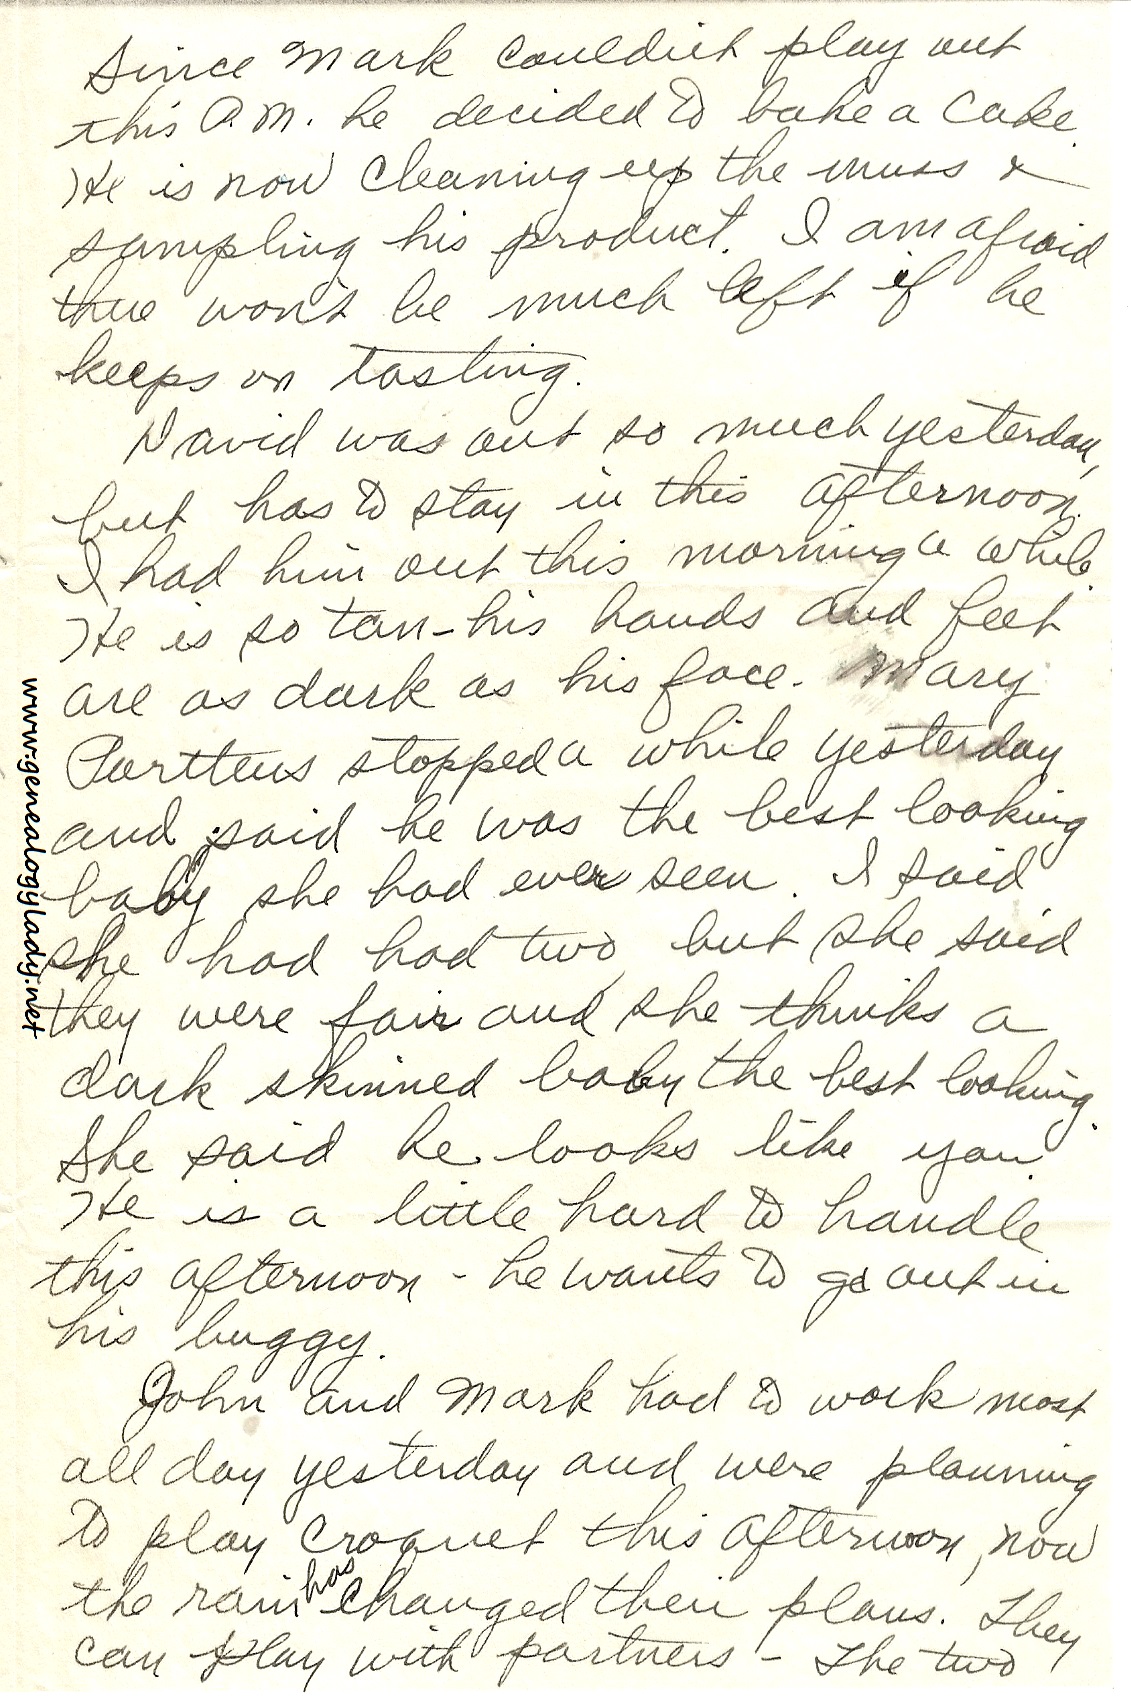 Since Mark couldn't play out
this A.M. he decided to bake a cake.
He is now cleaning up the muss &
sampling his product. I am afraid
there won't be much left if he
keeps on tasting.
David was out so much yesterday,
but has to stay in this afternoon.
I had him out this morning a while.
He is so tan - his hands and feet
are as dark as his face. Mary
stopped a while yesterday
and said he was the best looking
baby she had ever seen. I said
she had had two, but she said
they were fair and she thinks a
dark skinned baby the best looking.
She said he looks like you.
He is a little hard to handle
this afternoon - he wants to go out in
his buggy.
John and Mark had to work most
all day yesterday and were planning
to play croquet this afternoon, now
the rain has changed their plans. They
can play with partners - The two
www.genealogylady.net